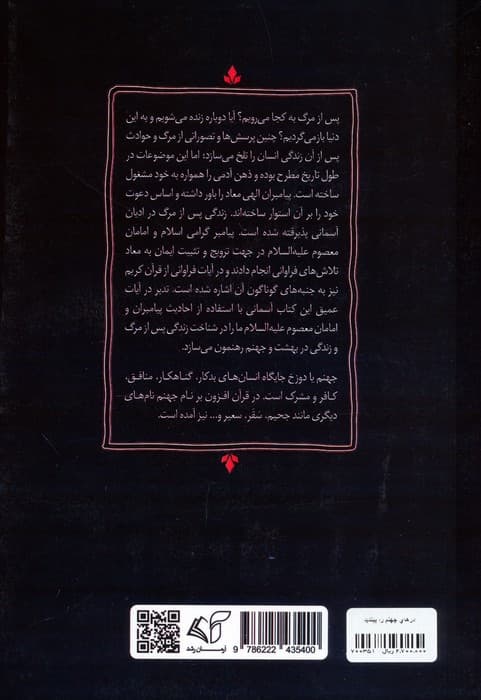 پس از مرگ به کجا می‌رویم؟ آیا دوباره زنده می‌شویم و به این
دنیا بازمی‌گردیم؟ چنین پرسش‌ها و تصوراتی از مرگ و حوادث
پس از آن زندگی انسان را تلخ می‌سازد؛ اما این موضوعات در
طول تاریخ مطرح بوده و ذهن آدمی را همواره به خود مشغول
ساخته است. پیامبران الهی معاد را باور داشته و اساس دعوت
خود را بر آن استوار ساخته‌اند. زندگی پس از مرگ در ادیان
آسمانی پذیرفته شده است. پیامبر گرامی اسلام و امامان
معصوم علیه‌السلام در جهت ترویج و تثبیت ایمان به معاد
تلاش‌های فراوانی انجام دادند و در آیات فراوانی از قرآن کریم
نیز به جنبه‌های گوناگون آن اشاره شده است. تدبر در آیات
عمیق این کتاب آسمانی با استفاده از احادیث پیامبران و
امامان معصوم علیه‌السلام ما را در شناخت زندگی پس از مرگ
و زندگی در بهشت و جهنم رهنمون می‌سازد.
جهنم یا دوزخ جایگاه انسان‌های بدکار، گناهکار، منافق،
کافر و مشرک است. در قرآن افزون بر نام جهنم نام‌های
دیگری مانند جحیم، سَقَر، سعیر و... نیز آمده است.
آرمان رشد
9 786222 435400
درهای جهنم را ببندید
۲,۷۰۰,۰۰۰ ریال ۷۰۰۳۵۱